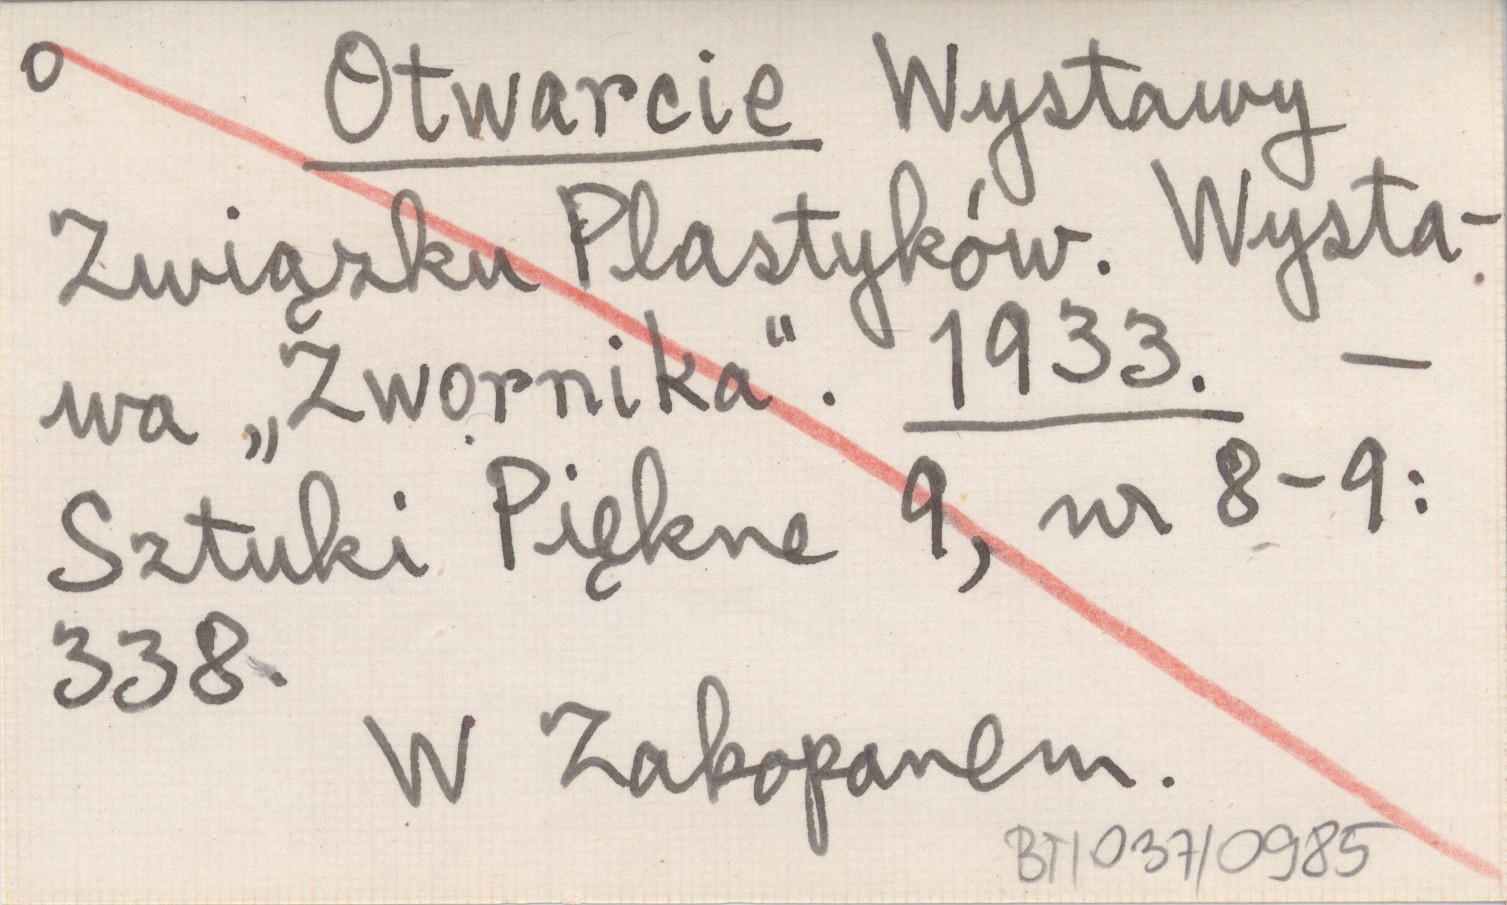 O Otwarcie Wystawy
Związku Plastyków. Wysta-
wa „Zwornika". 1933. —
Sztuki Piękne 9, nr 8-9:
338.
W Zakopanem.
BT/037/0985